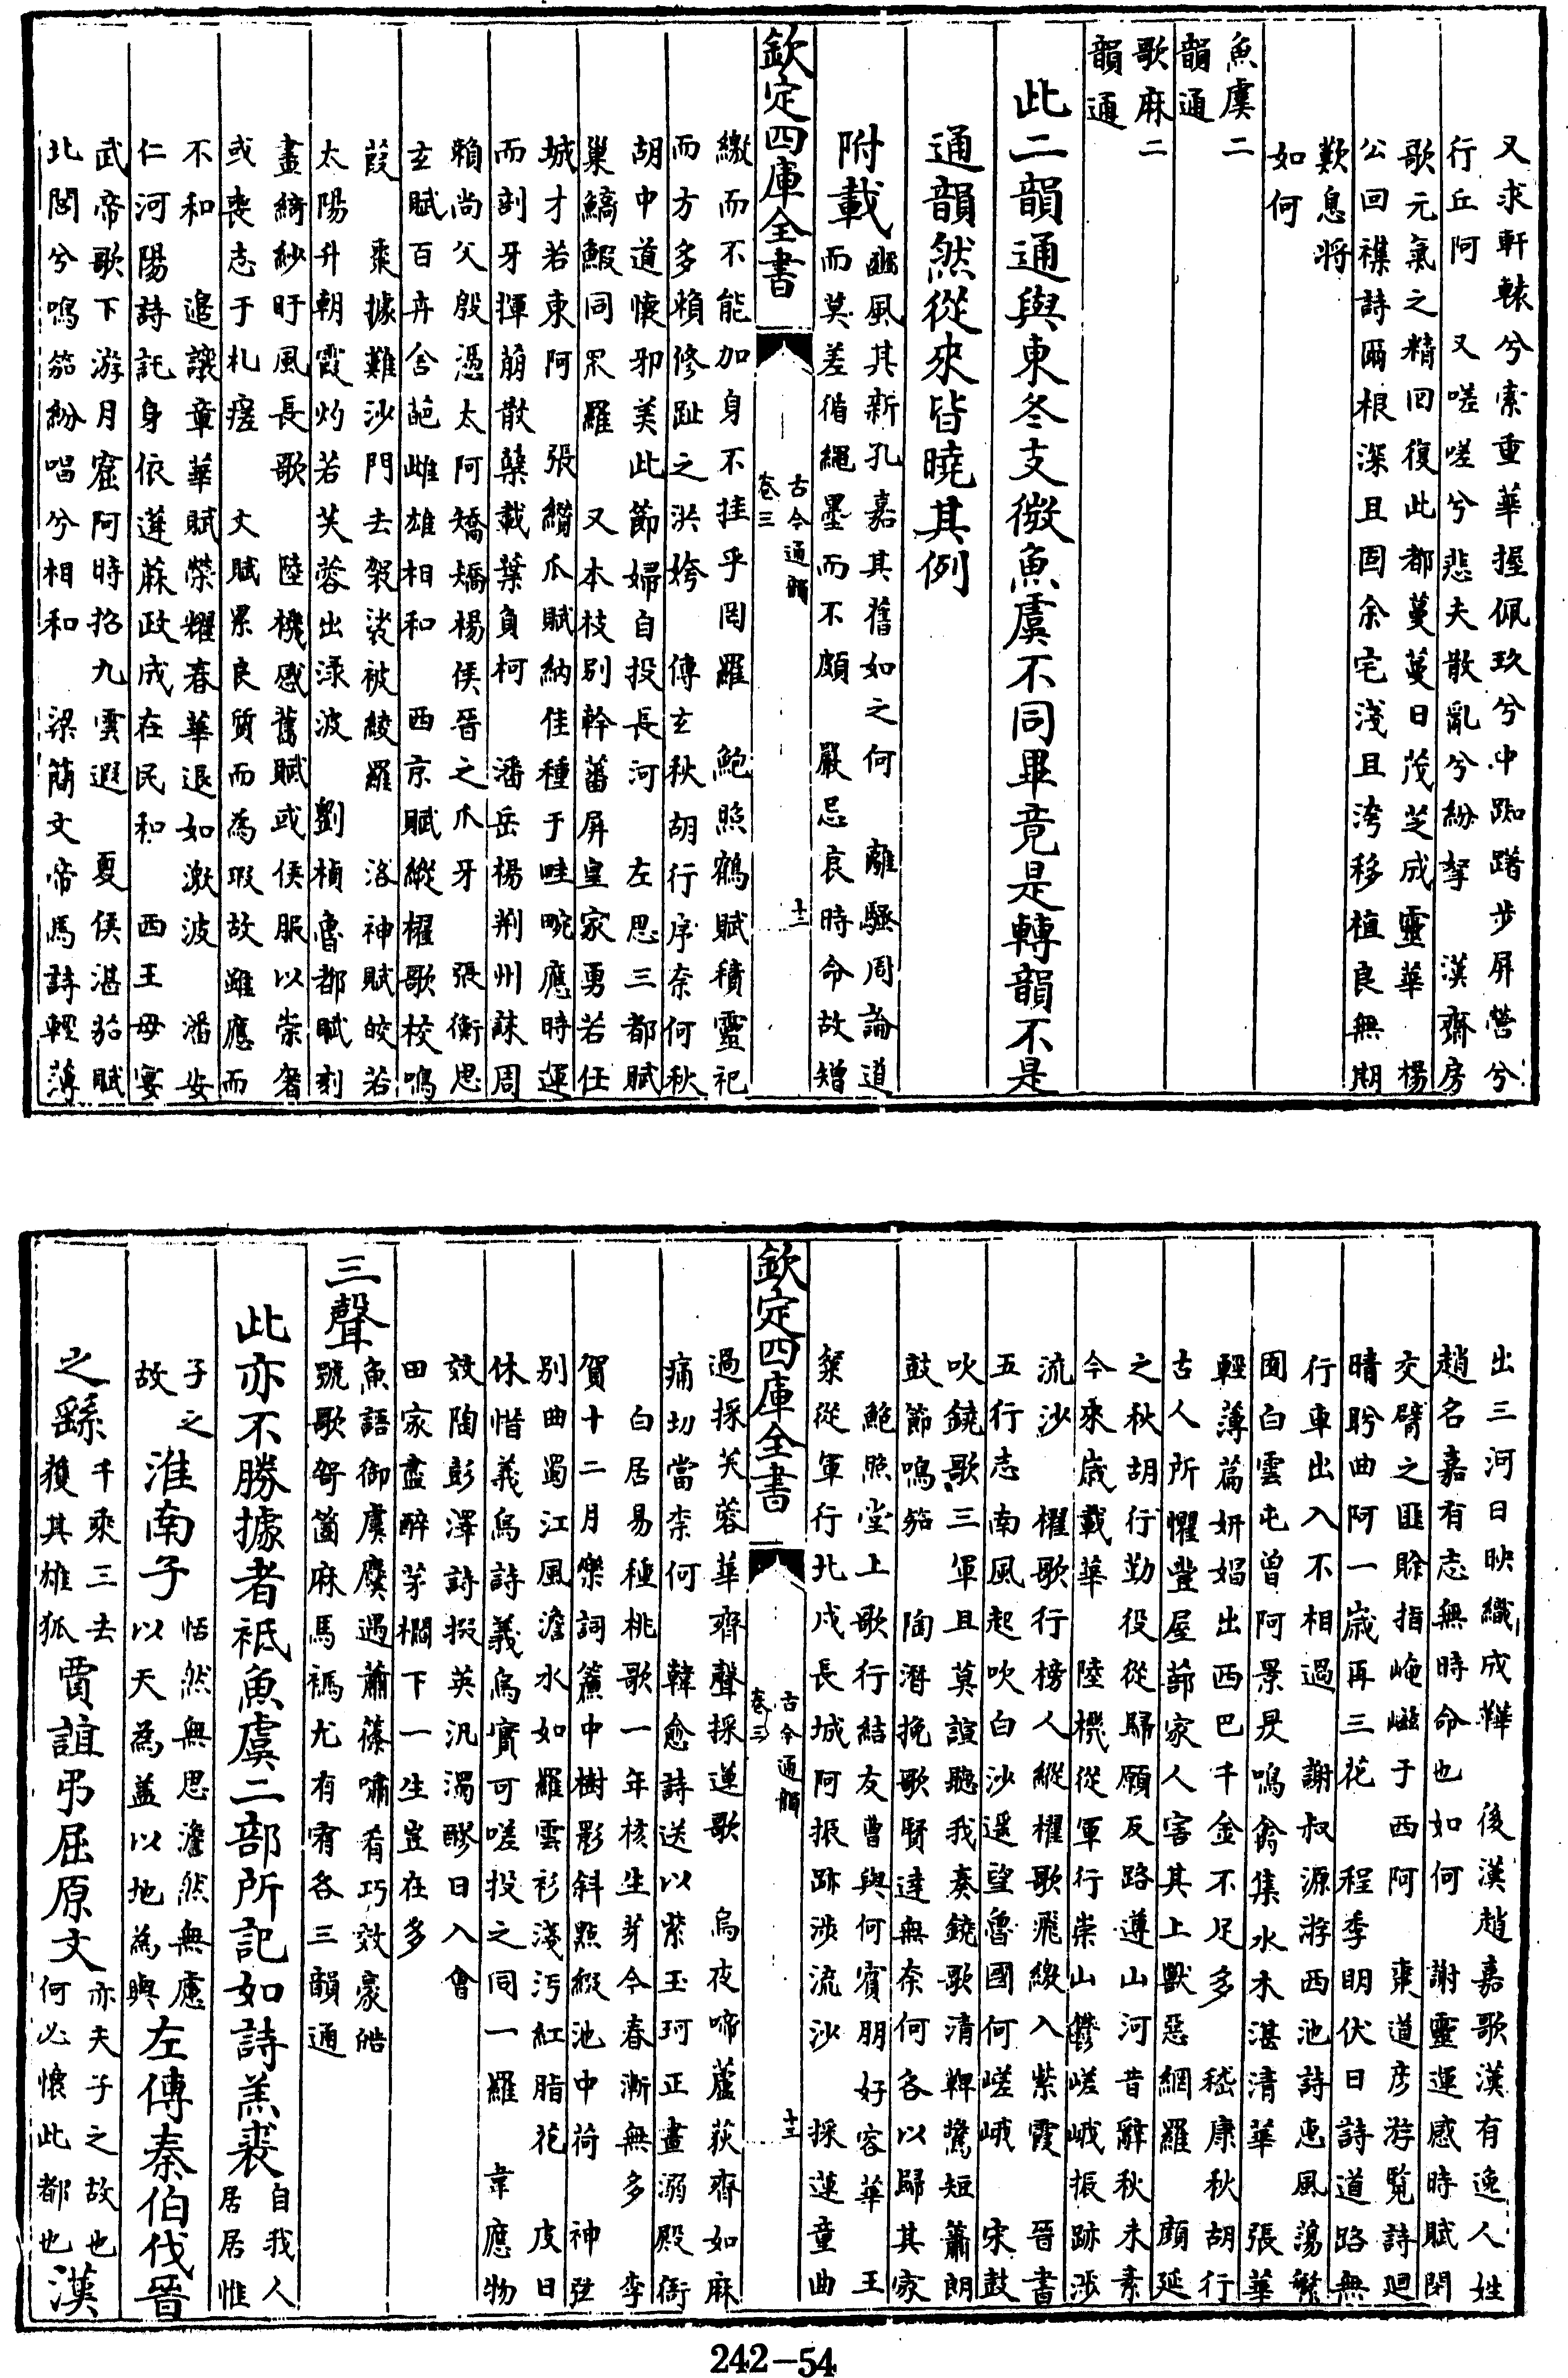 又求軒轅兮索重華握佩玖兮中踟躇步屏營兮
行丘阿 又嗟嗟兮悲夫散亂兮紛挐 漢齋房
歌元氣之精回復此都蔓蔓日茂芝成靈華 楊
公回襍詩爾根深且固余宅淺且洿移植良無期
歎息將
如何
魚虞二
韻通
歌麻二
韻通
此二韻通與東冬支微魚虞不同畢竟是轉韻不是
通韻然從來皆曉其例
附載
豳風其新孔嘉其舊如之何 離騷周論道
而莫差循繩墨而不頗 嚴忌哀時命故矰
欽定四庫全書
古今通韻
卷三
十二
繳而不能加身不挂乎罔羅 鮑照鶴賦積靈祀
而方多賴修趾之洪姱 傅玄秋胡行序奈何秋
胡中道懷邪美此節婦自投長河 左思三都賦
巢鱎鰕同罛羅 又本枝别幹蕃屏皇家勇若任
城才若東阿 張纘瓜賦納佳種于畦畹應時運
而剖牙揮萠散蘖載葉負柯 潘岳楊荆州誄周
賴尚父殷憑太阿矯矯楊侯晉之爪牙 張衡思
玄賦百卉含葩雌雄相和 西京賦縱櫂歌校鳴
葭 棗據難沙門去袈裟被綾羅 洛神賦皎若
太陽升朝霞灼若芙蓉出淥波 劉楨魯都賦刻
畫綺紗盱風長歌 陸機感舊賦或侯服以崇奢
或喪志于札瘥 文賦累良質而為瑕故雖應而
不和 追讓章華賦榮耀春華退如激波 潘安
仁河陽詩託身依蓬蔴政成在民和 西王母宴
武帝歌下游月窟阿時招九雲遐 夏侯湛笳賦
北閣兮鳴笳紛唱兮相和 梁簡文帝馬詩輕薄
出三河日映織成鞾 後漢趙嘉歌漢有逸人姓
趙名嘉有志無時命也如何 謝靈運感時賦閉
交臂之匪賒指崦嵫于西阿 棗道彦游覽詩廻
晴盻曲阿一歲再三花 程季明伏日詩道路無
行車出入不相過 謝叔源游西池詩惠風蕩繁
囿白雲屯曾阿景昃鳴禽集水木湛清華 張華
輕薄篇妍娼出西巴千金不足多 嵇康秋胡行
古人所懼豐屋蔀家人害其上獸惡網羅 顔延
之秋胡行勤役從歸願反路遵山河昔辭秋未素
今來歲載華 陸機從軍行崇山鬱嵯峨振跡涉
流沙 櫂歌行榜人縱櫂歌飛繳入紫霞 晉書
五行志南風起吹白沙遥望魯國何嵯峨 宋鼓
吹鐃歌三軍且莫諠聽我奏鐃歌清鞞驚短簫朗
鼓節鳴笳 陶潛挽歌賢達無奈何各以歸其家
鮑照堂上歌行結友曹與何賓朋好容華 王
粲從軍行北戍長城阿振跡涉流沙 採蓮童曲
欽定四庫全書
古今通韻
卷三
十三
過採芙蓉華齊聲採蓮歌 烏夜啼蘆荻齊如麻
痛切當柰何 韓愈詩送以紫玉珂正晝溺殿衙
白居易種桃歌一年核生芽今春漸無多 李
賀十二月樂詞簾中樹影斜㸃綴池中荷 神弦
别曲蜀江風澹水如羅雲衫淺汚紅脂花 皮日
休惜義鳥詩義鳥實可嗟投之同一羅 韋應物
效陶彭澤詩掇英汎濁醪日入會
田家盡醉茅檐下一生豈在多
三聲
魚語御虞麌遇蕭篠嘯肴巧效豪皓
號歌哿箇麻馬禡尤有宥各三韻通
此亦不勝據者祗魚虞二部所記如詩羔裘
自我人
居居惟
子之
故
淮南子
恬然無思澹然無慮
以天為蓋以地為輿
左傳秦伯伐晉
之繇
千乘三去
獲其雄狐
賈誼弔屈原文
亦夫子之故也
何必懷此都也
漢
242-54